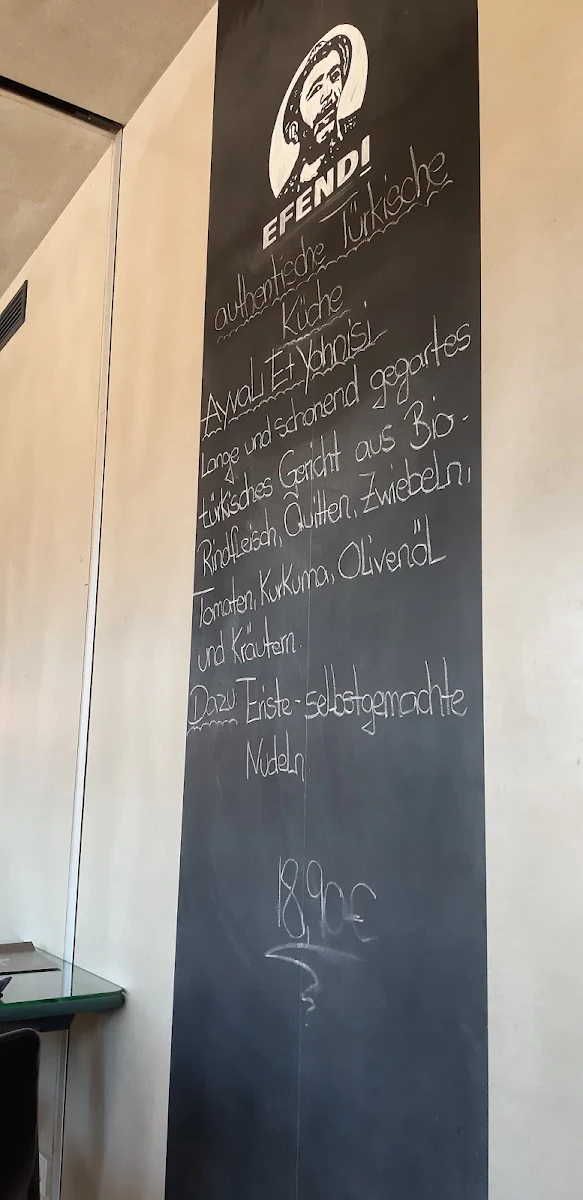 EFENDI
authentische Türkische
Küche
Ayvalı Et Yahnisi
Lange und schonend gegartes
türkisches Gericht aus Bio-
Rindfleisch, Quitten, Zwiebeln,
Tomaten, Kurkuma, Olivenöl
und Kräutern.
Dazu: Eriste - selbstgemachte
Nudeln
18,90€